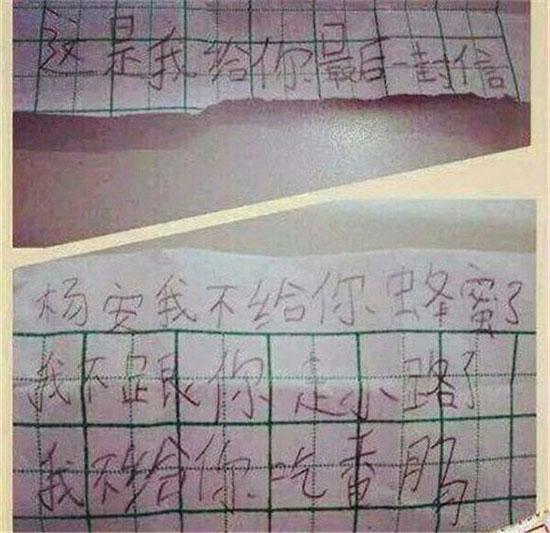 这是我给你最后一封信
杨安我不给你蜂蜜了
我不跟你走小路了
我不给你吃香肠